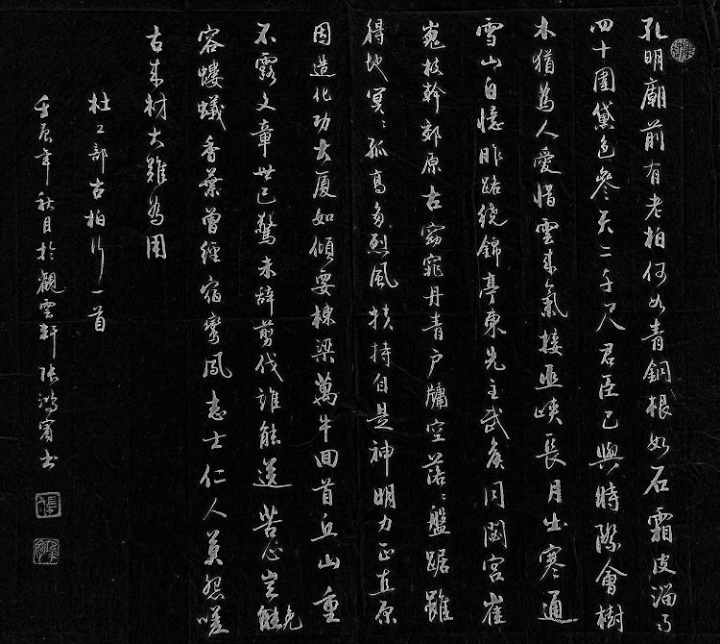 孔明廟前有老柏何如青銅根如石霜皮溜雨
四十圍黛色參天二千尺君臣已與時際會樹
木猶為人愛惜雲來氣接巫峽長月出寒通
雪山白憶昨路繞錦亭東先主武侯同閟宮崔
嵬枝幹郊原古窈窕丹青戶牖空落々盤踞雖
得地冥々孤高多烈風扶持自是神明力正直原
因造化功大厦如傾要棟梁萬牛回首丘山重
不露文章世已驚未辭剪伐誰能送苦心豈能免
容螻蟻香葉曾經宿鸞鳳志士仁人莫怨嗟
古來材大難為用
杜工部古柏行一首
壬辰年秋月於觀雲軒張鴻賓書